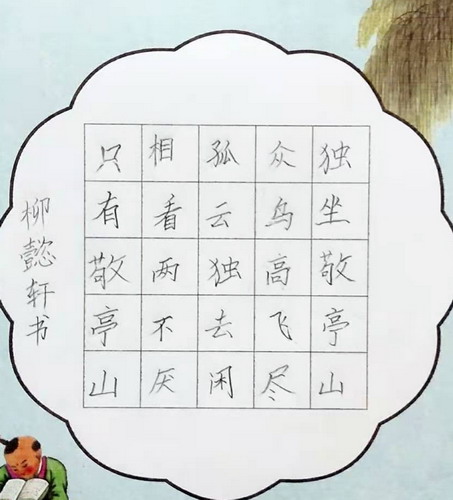 独坐敬亭山
众鸟高飞尽
孤云独去闲
相看两不厌
只有敬亭山
柳懿轩书